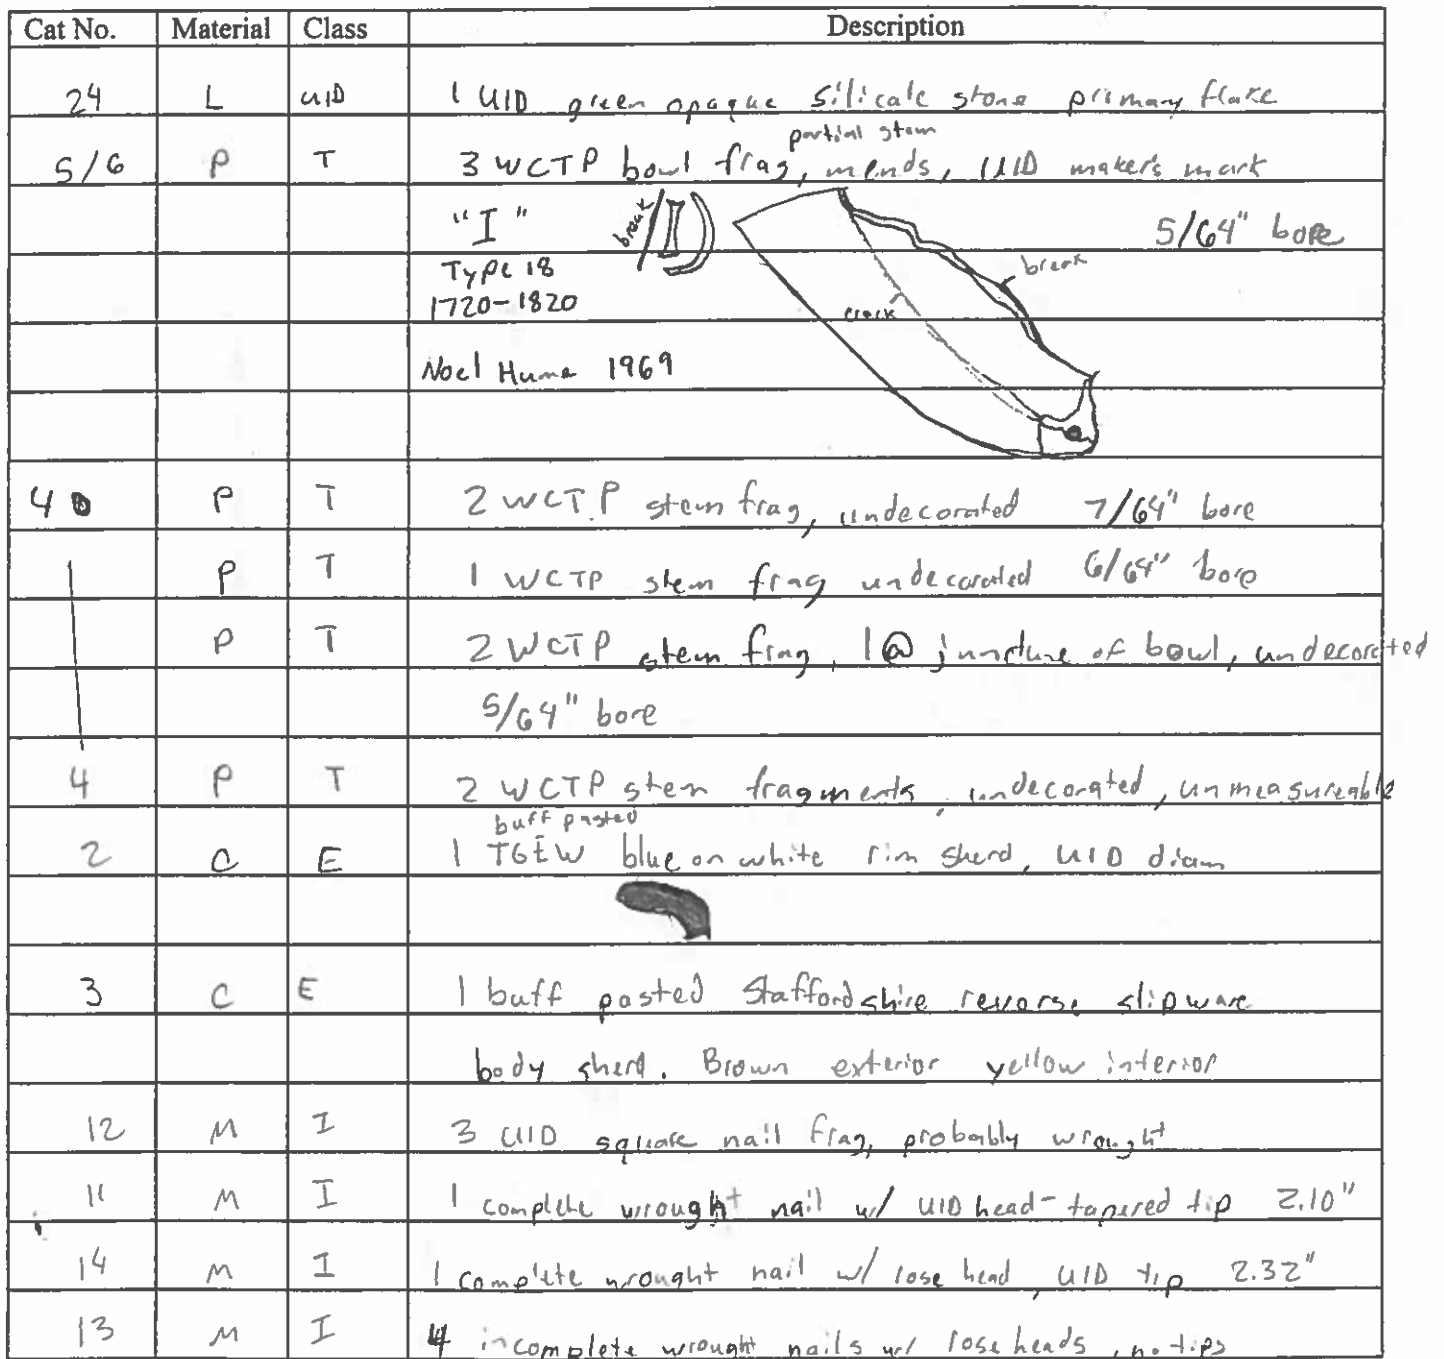 Cat No. Material Class Description
24 L UID 1 UID green opaque silicate stone primary flake
partial stem
5/6 P T 3 WCTP bowl frag, mends, UID maker's mark
"I" break I 5/64" bore
Type 18 break
1720-1820 crack
Noel Hume 1969
4 P T 2 WCTP stem frag, undecorated 7/64" bore
P T 1 WCTP stem frag undecorated 6/64" bore
P T 2 WCTP stem frag, 1 @ juncture of bowl, undecorated
5/64" bore
4 P T 2 WCTP stem fragments, undecorated, unmeasureable
buff pasted
2 C E 1 TGEW blue on white rim sherd, UID diam
3 C E 1 buff pasted Staffordshire reverse slipware
body sherd. Brown exterior yellow interior
12 M I 3 UID square nail frag, probably wrought
11 M I 1 complete wrought nail w/ UID head - tapered tip 2.10"
14 M I 1 complete wrought nail w/ rose head, UID tip 2.32"
13 M I 4 incomplete wrought nails w/ rose heads, no tips